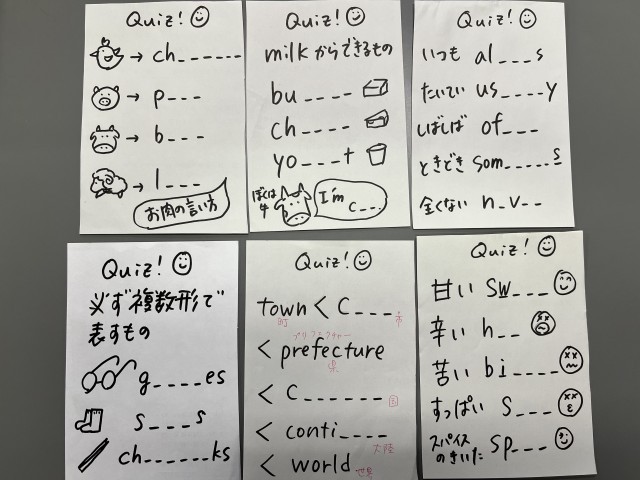 Quiz!
→ ch______
→ p___
→ b___
→ l___
お肉の言い方
Quiz!
milkからできるもの
bu____
ch____
yo___t
ぼくは牛
I'm c__
Quiz!
いつも al___s
たいてい us____y
しばしば of___
ときどき som_____s
全くない n_v__
Quiz!
必ず複数形で
表すもの
g____es
s___s
ch______ks
Quiz!
town < C___
町 市
プリフェクチャー
< prefecture
県
< C______ 国
< conti____
大陸
< world 世界
Quiz!
甘い sw___
辛い h__
苦い bi____
すっぱい s___
スパイスのきいた sp___